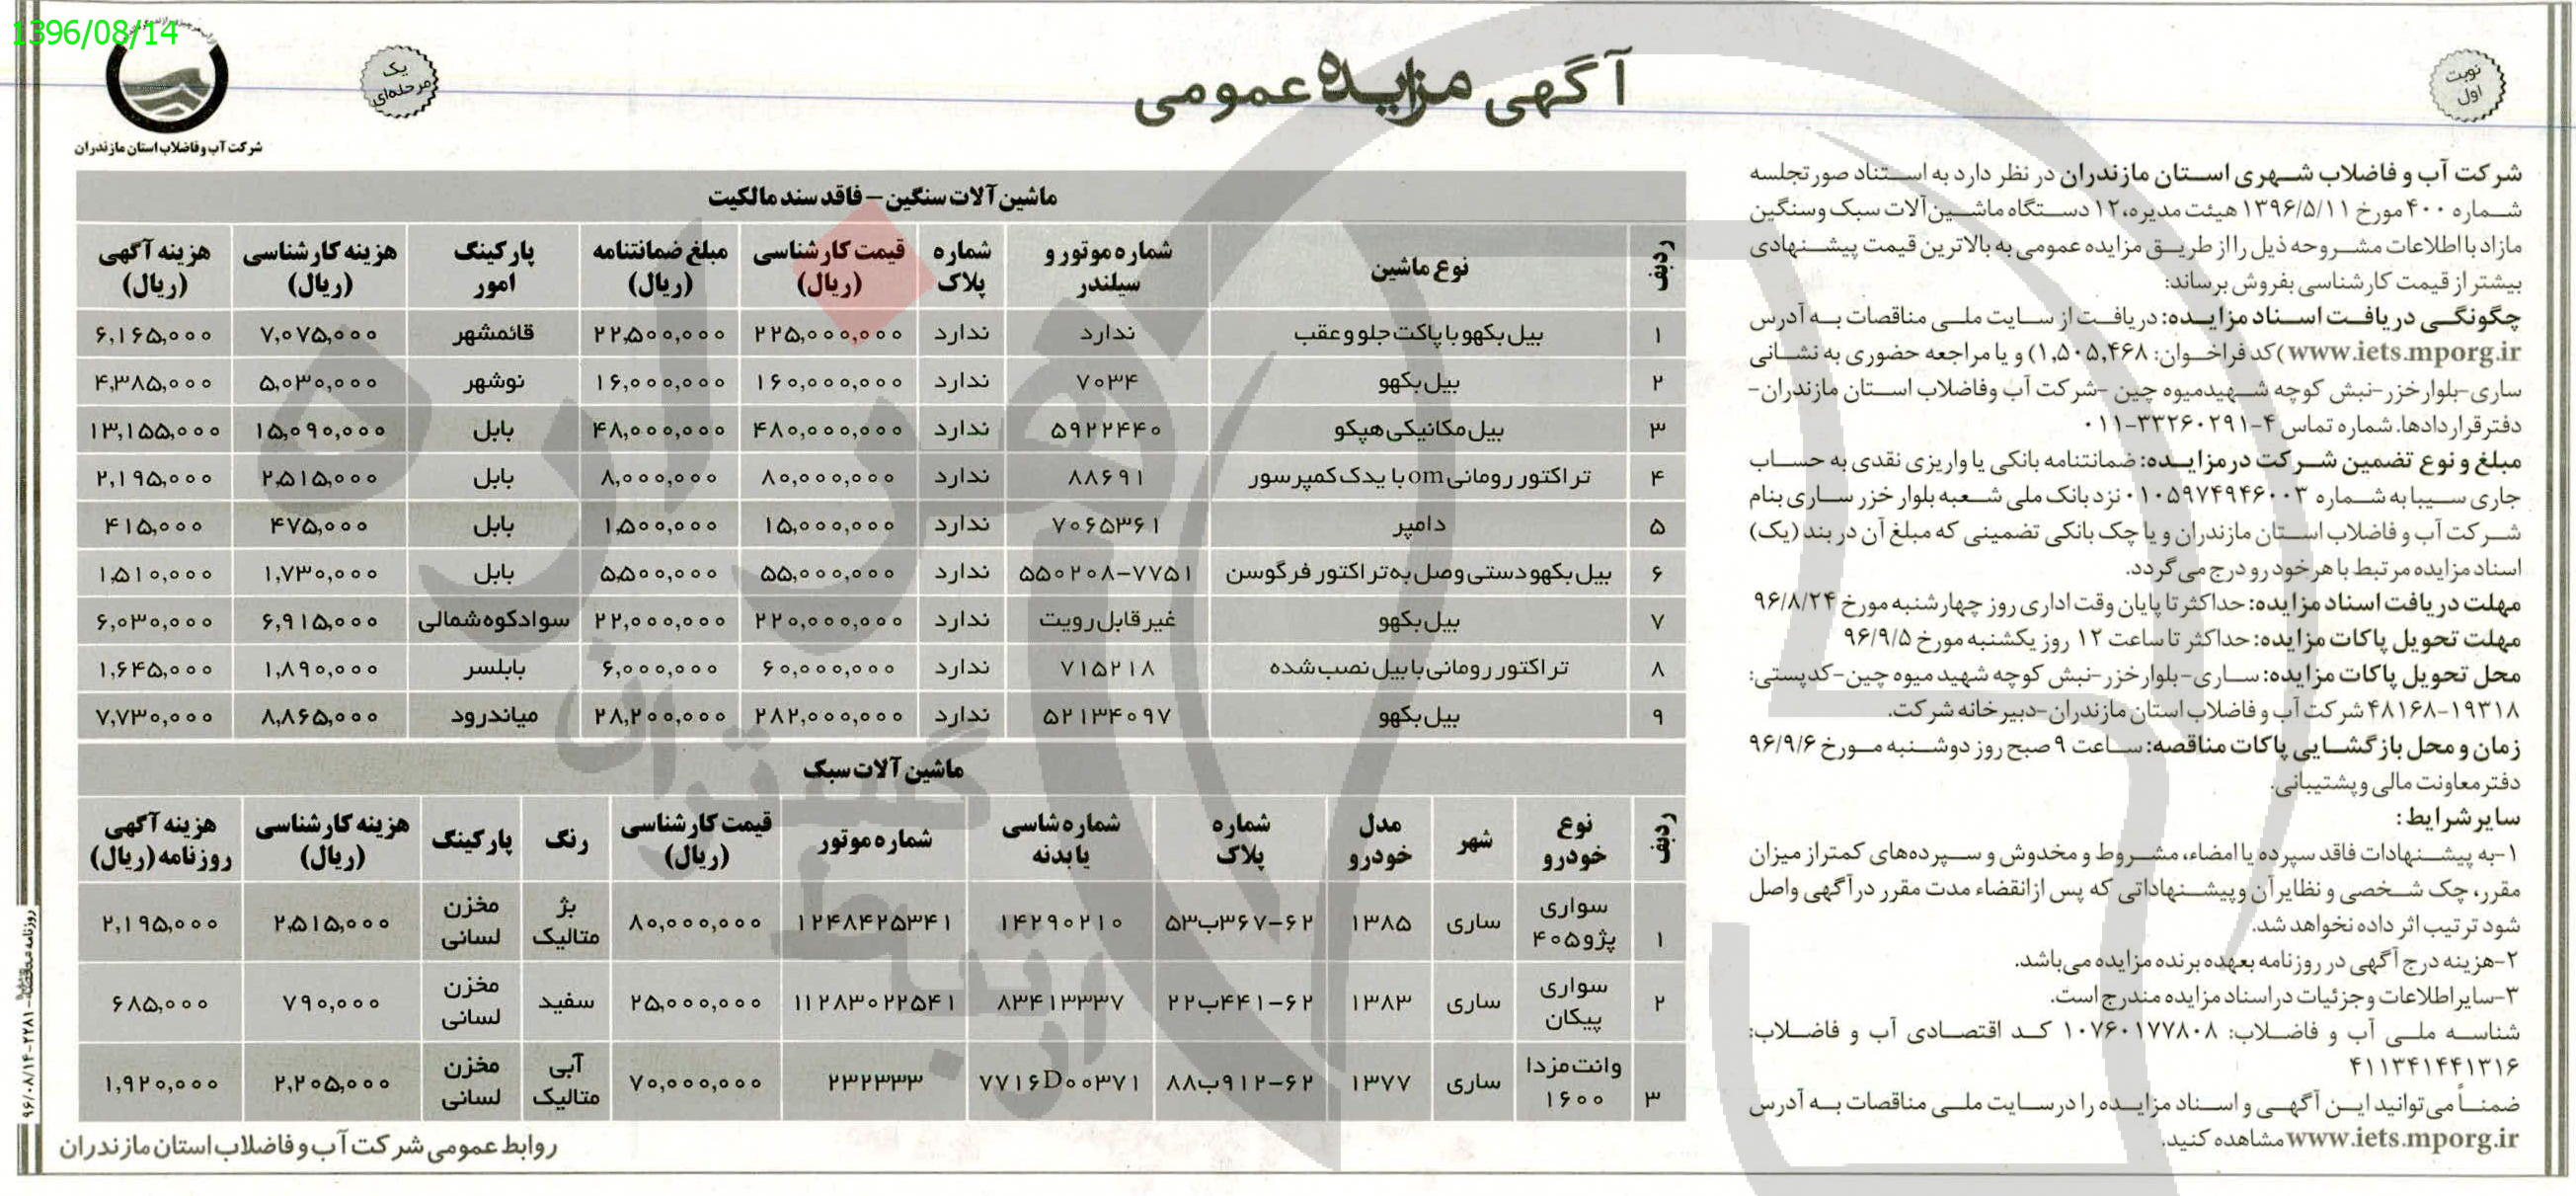 1396/08/14
نوبت
اول
آگهی مزایده عمومی
یک
مرحله‌ای
شرکت آب و فاضلاب استان مازندران
شرکت آب و فاضلاب شهری استان مازندران در نظر دارد به استناد صورتجلسه
شماره ۴۰۰ مورخ ۱۳۹۶/۵/۱۱ هیئت مدیره، ۱۲ دستگاه ماشین‌آلات سبک وسنگین
مازاد با اطلاعات مشروحه ذیل را از طریق مزایده عمومی به بالاترین قیمت پیشنهادی
بیشتر از قیمت کارشناسی بفروش برساند:
چگونگی دریافت اسناد مزایده: دریافت از سایت ملی مناقصات به آدرس
www.iets.mporg.ir (کد فراخوان: ۱,۵۰۵,۴۶۸) و یا مراجعه حضوری به نشانی
ساری-بلوارخزر-نبش کوچه شهیدمیوه چین -شرکت آب وفاضلاب استان مازندران-
دفترقراردادها. شماره تماس ۴-۳۳۲۶۰۲۹۱-۰۱۱
مبلغ و نوع تضمین شرکت درمزایده: ضمانتنامه بانکی یا واریزی نقدی به حساب
جاری سیبا به شماره ۰۱۰۵۹۷۴۹۴۶۰۰۳ نزد بانک ملی شعبه بلوار خزر ساری بنام
شرکت آب و فاضلاب استان مازندران و یا چک بانکی تضمینی که مبلغ آن در بند (یک)
اسناد مزایده مرتبط با هر خودرو درج می گردد.
مهلت دریافت اسناد مزایده: حداکثر تا پایان وقت اداری روز چهارشنبه مورخ ۹۶/۸/۲۴
مهلت تحویل پاکات مزایده: حداکثر تا ساعت ۱۲ روز یکشنبه مورخ ۹۶/۹/۵
محل تحویل پاکات مزایده: ساری-بلوارخزر-نبش کوچه شهید میوه چین-کدپستی:
۴۸۱۶۸-۱۹۳۱۸ شرکت آب و فاضلاب استان مازندران-دبیرخانه شرکت.
زمان و محل بازگشایی پاکات مناقصه: ساعت ۹ صبح روز دوشنبه مورخ ۹۶/۹/۶
دفترمعاونت مالی وپشتیبانی.
سایرشرایط:
۱-به پیشنهادات فاقد سپرده یا امضاء، مشروط و مخدوش و سپرده‌های کمتراز میزان
مقرر، چک شخصی و نظایرآن وپیشنهاداتی که پس ازانقضاء مدت مقرر درآگهی واصل
شود ترتیب اثر داده نخواهد شد.
۲-هزینه درج آگهی در روزنامه بعهده برنده مزایده می‌باشد.
۳-سایراطلاعات وجزئیات دراسناد مزایده مندرج است.
شناسه ملی آب و فاضلاب: ۱۰۷۶۰۱۷۷۸۰۸ کد اقتصادی آب و فاضلاب:
۴۱۱۳۴۱۴۴۱۳۱۶
ضمناً می‌توانید این آگهی و اسناد مزایده را درسایت ملی مناقصات به آدرس
www.iets.mporg.ir مشاهده کنید.
ماشین آلات سنگین – فاقد سند مالکیت
ردیف نوع ماشین شماره موتور و سیلندر شماره پلاک قیمت کارشناسی (ریال) مبلغ ضمانتنامه (ریال) پارکینگ امور هزینه کارشناسی (ریال) هزینه آگهی (ریال)
۱ بیل بکهو با پاکت جلو و عقب ندارد ندارد ۲۲۵,۰۰۰,۰۰۰ ۲۲,۵۰۰,۰۰۰ قائمشهر ۷,۰۷۵,۰۰۰ ۶,۱۶۵,۰۰۰
۲ بیل بکهو ۷۰۳۴ ندارد ۱۶۰,۰۰۰,۰۰۰ ۱۶,۰۰۰,۰۰۰ نوشهر ۵,۰۳۰,۰۰۰ ۴,۳۸۵,۰۰۰
۳ بیل مکانیکی هپکو ۵۹۲۲۴۴۰ ندارد ۴۸۰,۰۰۰,۰۰۰ ۴۸,۰۰۰,۰۰۰ بابل ۱۵,۰۹۰,۰۰۰ ۱۳,۱۵۵,۰۰۰
۴ تراکتور رومانی om با یدک کمپرسور ۸۸۶۹۱ ندارد ۸۰,۰۰۰,۰۰۰ ۸,۰۰۰,۰۰۰ بابل ۲,۵۱۵,۰۰۰ ۲,۱۹۵,۰۰۰
۵ دامپر ۷۰۶۵۳۶۱ ندارد ۱۵,۰۰۰,۰۰۰ ۱,۵۰۰,۰۰۰ بابل ۴۷۵,۰۰۰ ۴۱۵,۰۰۰
۶ بیل بکهو دستی وصل به تراکتور فرگوسن ۵۵۰۲۰۸-۷۷۵۱ ندارد ۵۵,۰۰۰,۰۰۰ ۵,۵۰۰,۰۰۰ بابل ۱,۷۳۰,۰۰۰ ۱,۵۱۰,۰۰۰
۷ بیل بکهو غیر قابل رویت ندارد ۲۲۰,۰۰۰,۰۰۰ ۲۲,۰۰۰,۰۰۰ سوادکوه شمالی ۶,۹۱۵,۰۰۰ ۶,۰۳۰,۰۰۰
۸ تراکتور رومانی با بیل نصب شده ۷۱۵۲۱۸ ندارد ۶۰,۰۰۰,۰۰۰ ۶,۰۰۰,۰۰۰ بابلسر ۱,۸۹۰,۰۰۰ ۱,۶۴۵,۰۰۰
۹ بیل بکهو ۵۲۱۳۴۰۹۷ ندارد ۲۸۲,۰۰۰,۰۰۰ ۲۸,۲۰۰,۰۰۰ میاندرود ۸,۸۶۵,۰۰۰ ۷,۷۳۰,۰۰۰
ماشین آلات سبک
ردیف نوع خودرو شهر مدل خودرو شماره پلاک شماره شاسی یا بدنه شماره موتور قیمت کارشناسی (ریال) رنگ پارکینگ هزینه کارشناسی (ریال) هزینه آگهی روزنامه (ریال)
۱ سواری پژو ۴۰۵ ساری ۱۳۸۵ ۶۲-۳۶۷ب۵۳ ۱۴۲۹۰۲۱۰ ۱۲۴۸۴۲۵۳۴۱ ۸۰,۰۰۰,۰۰۰ بژ متالیک مخزن لسانی ۲,۵۱۵,۰۰۰ ۲,۱۹۵,۰۰۰
۲ سواری پیکان ساری ۱۳۸۳ ۶۲-۴۴۱ب۲۲ ۸۳۴۱۳۳۳۷ ۱۱۲۸۳۰۲۲۵۴۱ ۲۵,۰۰۰,۰۰۰ سفید مخزن لسانی ۷۹۰,۰۰۰ ۶۸۵,۰۰۰
۳ وانت مزدا ۱۶۰۰ ساری ۱۳۷۷ ۶۲-۹۱۲ب۸۸ ۷۷۱۶D۰۰۳۷۱ ۲۳۲۳۳۳ ۷۰,۰۰۰,۰۰۰ آبی متالیک مخزن لسانی ۲,۲۰۵,۰۰۰ ۱,۹۲۰,۰۰۰
روابط عمومی شرکت آب و فاضلاب استان مازندران
روزنامه مناقصه – ۲۲۸۱-۹۶/۰۸/۱۴